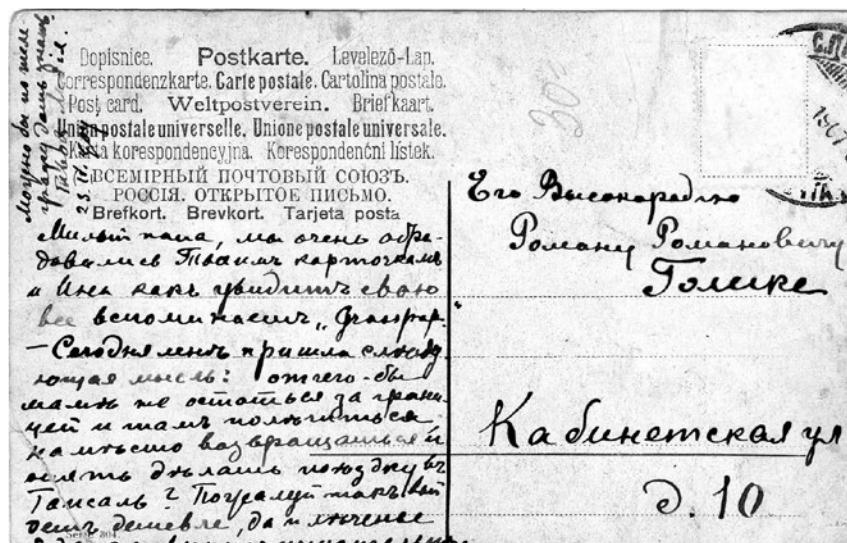 Dopisnice. Postkarte. Levelező-Lap.
Correspondenzkarte. Carte postale. Cartolina postale.
Post card. Weltpostverein. Briefkaart.
Union postale universelle. Unione postale universale.
Karta korespondencyjna. Korespondenční lístek.
ВСЕМІРНЫЙ ПОЧТОВЫЙ СОЮЗЪ.
РОССІЯ. ОТКРЫТОЕ ПИСЬМО.
Brefkort. Brevkort. Tarjeta posta
Милый папа, мы очень обра-
довались Твоимъ карточкамъ
и Инна какъ увидитъ свою
все вспоминаетъ
— Сегодня мнѣ пришла слѣду
ющая мысль: отчего-бы
мамѣ не остаться за грани-
цей и тамъ полѣчиться,
намѣсто возвращаться и
опять дѣлать поѣздку въ
Гапсаль? Пожалуй такъ вый
детъ дешевле, да и лѣченье
Serie 304
Его Высокородію
Роману Романовичу
Голике
Кабинетская ул
д. 10
С.П
1907
30